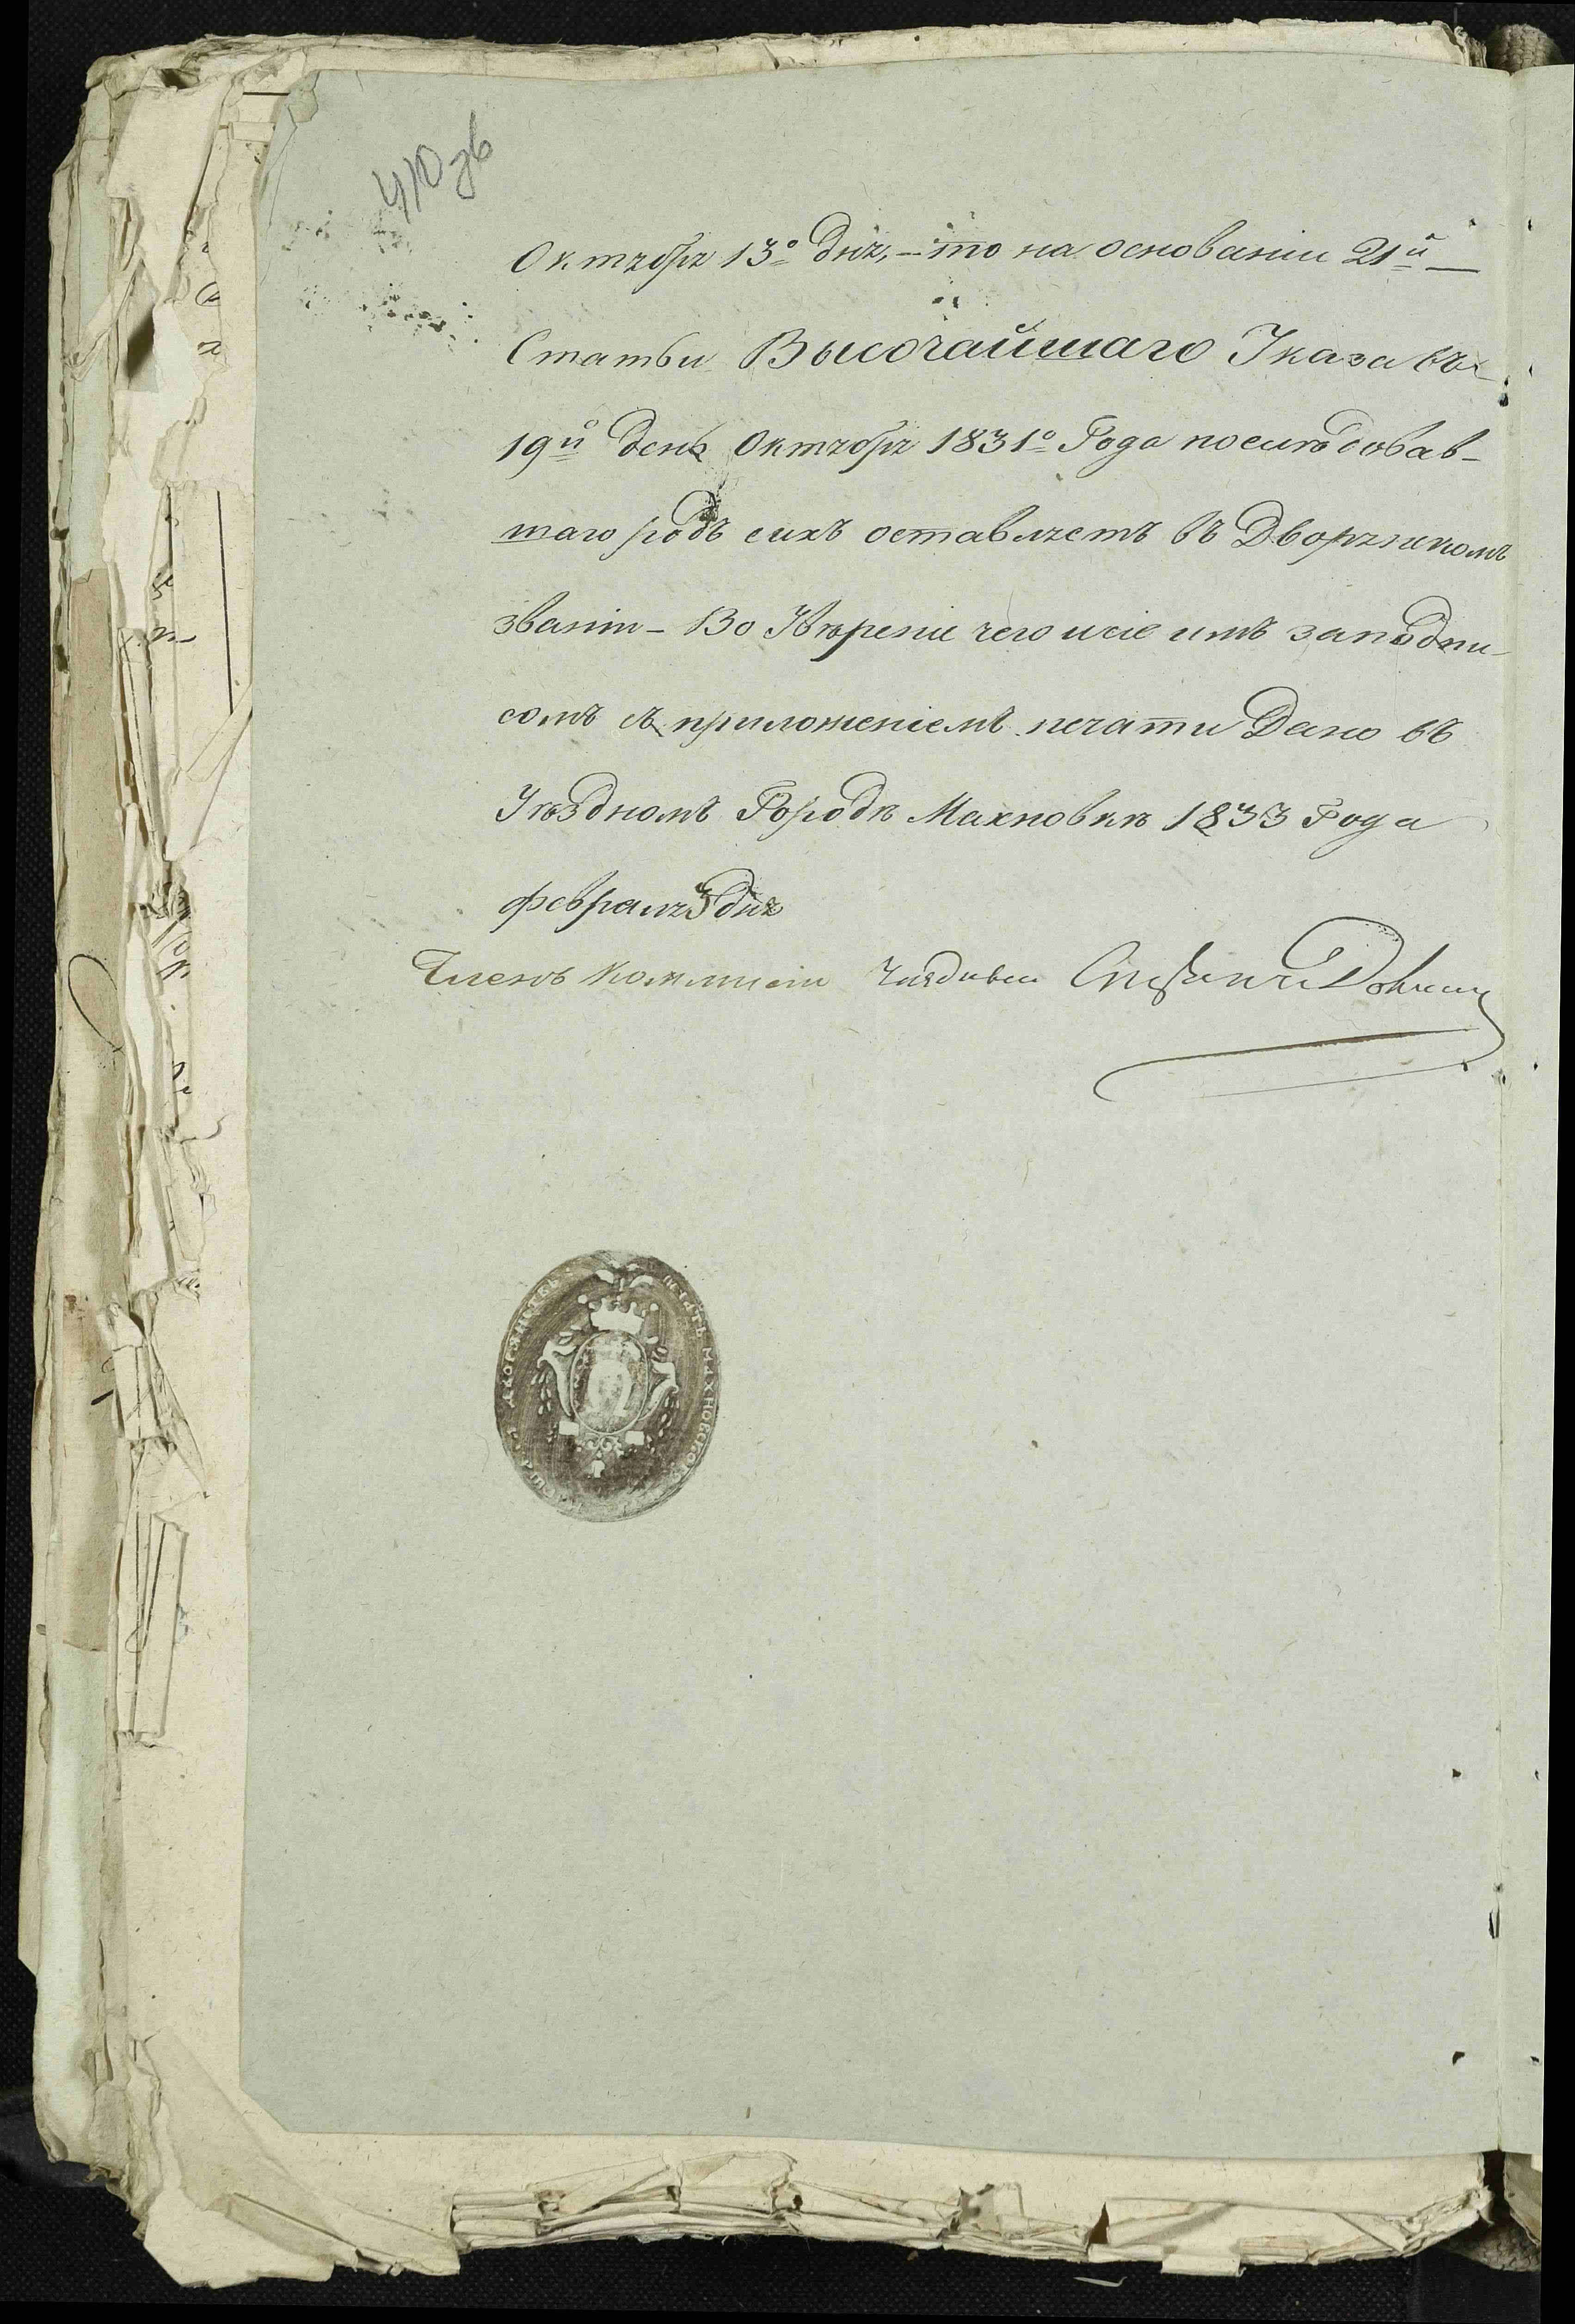 410 зв
Октября 13º дня, – то на основаніи 21й
Статьи Высочайшаго Указа въ
19й день Октября 1831º Года последовав-
шаго родъ сихъ оставляетъ въ Дворянскомъ
званіи – Во Увѣреніе чего и сіе имъ за подпи-
сомъ съ приложеніемъ печати Дано въ
Уѣздномъ Городѣ Махновкѣ 1833 Года
февраля 3 дня
Членъ Коммисіи
ПЕЧАТЬ МАХНОВСКОГО